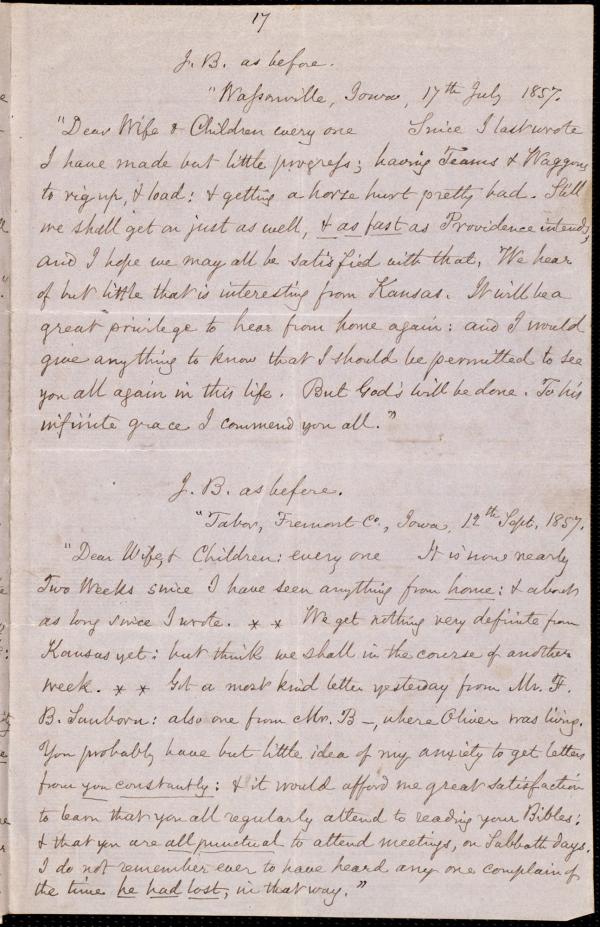 17
J. B. as before.
"Wassonville, Iowa, 17th July 1857.
"Dear Wife & Children every one Since I last wrote
I have made but little progress; having Teams & Waggons
to rig up, & load: & getting a horse hurt pretty bad. Still
we shall get on just as well, & as fast as Providence intends,
and I hope we may all be satisfied with that. We hear
of but little that is interesting from Kansas. It will be a
great privilege to hear from home again: and I would
give anything to know that I should be permitted to see
you all again in this life. But God's will be done. To his
infinite grace I commend you all."
J. B. as before.
"Tabor, Fremont Co., Iowa, 12th Sept. 1857.
"Dear Wife, & Children: every one It is now nearly
Two Weeks since I have seen anything from home: & about
as long since I wrote. x x We get nothing very definite from
Kansas yet: but think we shall in the course of another
week. x x Got a most kind letter yesterday from Mr. F.
B. Sanborn: also one from Mr. B—, where Oliver was living.
You probably have but little idea of my anxiety to get letters
from you constantly: & it would afford me great satisfaction
to learn that you all regularly attend to reading your Bibles:
& that you are all punctual to attend meetings, on Sabbath days.
I do not remember ever to have heard any one complain of
the time he had lost, in that way."